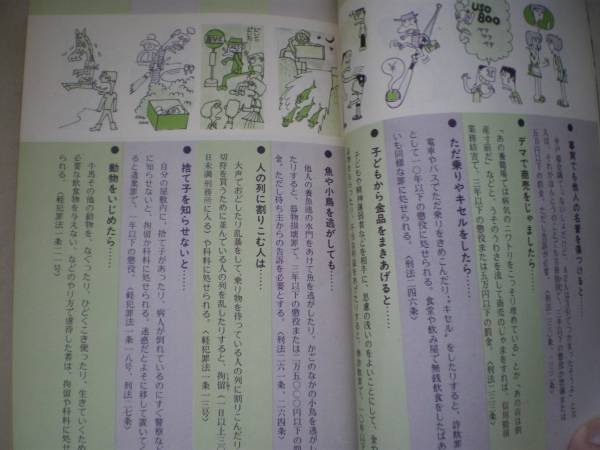 USO
800
● 事実でも他人の名誉を傷つけると
● デマで商売をじゃましたら……
「あの養鶏場では病気のニワトリをこっそり埋めている」とか「あの店は倒
産寸前だ」などと、うそのうわさを流して商売のじゃまをすれば、信用毀損
業務妨害で、三年以下の懲役または五万円以下の罰金。〈刑法二三三条〉
● ただ乗りやキセルをしたら……
電車やバスでただ乗りをきめこんだり、"キセル"をしたりすると、詐欺罪
として一〇年以下の懲役に処せられる。食堂や飲み屋で無銭飲食をしたばあ
いも同様な罪に処せられる。〈刑法二四六条〉
● 子どもから金品をまきあげると……
子どもや精神薄弱者などを相手に、思慮の浅いのをよいことにして、金や
● 魚や小鳥を逃がしても……
他人の養魚池の水門をあけて魚を逃がしたり、かごのなかの小鳥を逃がし
たりすると、器物損壊罪で、三年以下の懲役または二万五〇〇〇円以下の罰
金。ただし持ち主からの告訴を必要とする。〈刑法二六一条、二六四条〉
● 人の列に割りこむ人は……
大声でおどしたり乱暴をして、乗り物を待っている人の列に割りこんだり、
切符を買うために並んでいる人の列を乱したりすると、拘留(一日以上三〇
日未満刑務所に入る)や科料に処せられる。〈軽犯罪法一条一三号〉
● 捨て子を知らせないと……
自分の屋敷内に、捨て子があったり、病人が倒れているのにすぐ警察など
に知らせないと、拘留か科料に処せられる。迷惑だとよそに移して置いてく
ると遺棄罪で、一年以下の懲役。〈軽犯罪法一条一八号、刑法二一七条〉
● 動物をいじめたら……
牛馬その他の動物を、なぐったり、ひどくこき使ったり、生きていくため
必要な飲食物を与えない、などのやり方で虐待した者は、拘留や科料に処せ
られる。〈軽犯罪法一条二一号〉